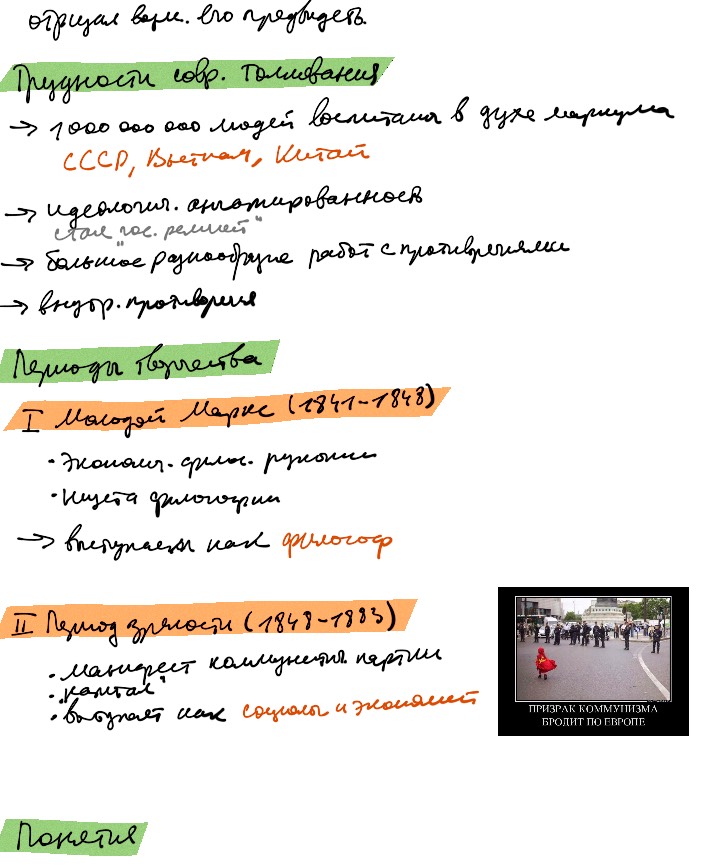 отрицал возм. его предвидеть.
Трудности совр. толкования
→ 1 000 000 000 людей воспитаны в духе марксизма
СССР, Вьетнам, Китай
→ идеологич. ангажированность
стал "гос. религией"
→ большое разнообразие работ с противоречиями
→ внутр. противоречия
Периоды творчества
I Молодой Маркс (1841-1848)
· Эконом. филос. рукописи
· Нищета философии
→ выступает как философ
II Период зрелости (1848-1883)
· манифест коммунистич. партии
· "капитал"
· выступает как социолог и экономист
ПРИЗРАК КОММУНИЗМА
БРОДИТ ПО ЕВРОПЕ
Понятия